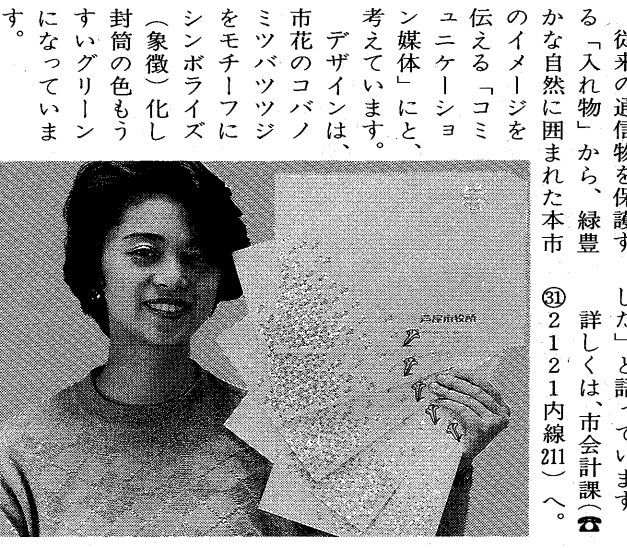 従来の通信物を保護す
る「入れ物」から、緑豊
かな自然に囲まれた本市
のイメージを
伝える「コミ
ュニケーショ
ン媒体」にと、
考えています。
デザインは、
市花のコバノ
ミツバツツジ
をモチーフに
シンボライズ
（象徴）化し
封筒の色もう
すいグリーン
になっていま
す。
した」と語っています
詳しくは、市会計課（☎
㉛２１２１内線211）へ。
芦屋市役所